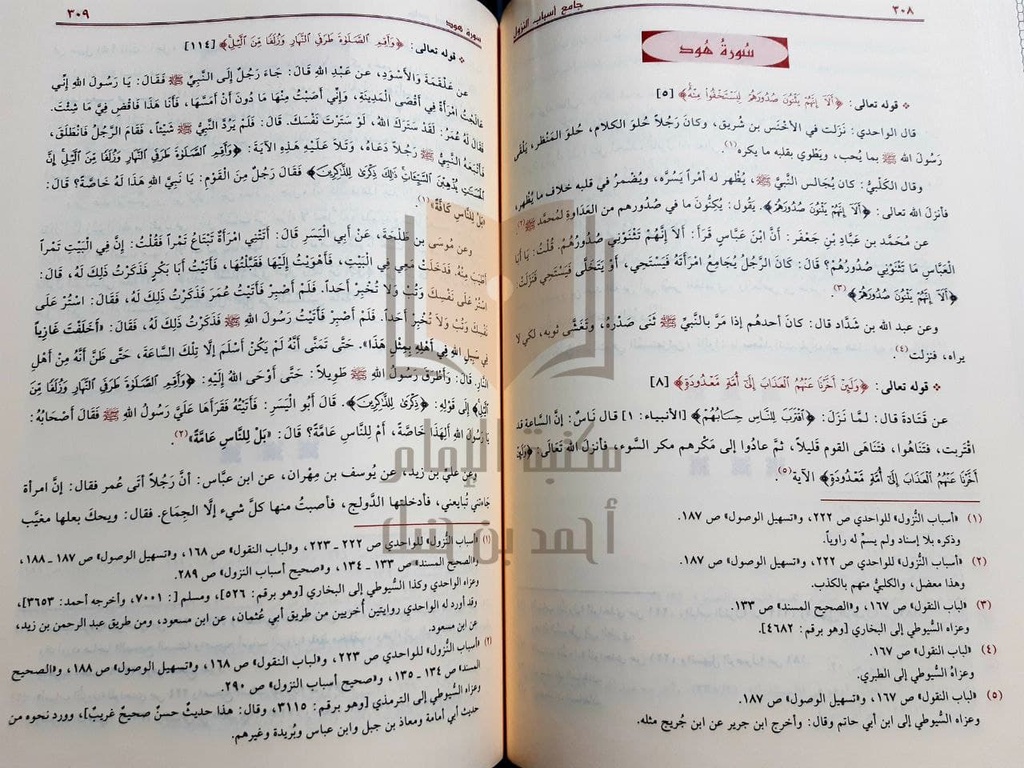 ٣٠٨
جامع أسباب النزول
سُورَةُ هُود
* قوله تعالى: ﴿أَلَا إِنَّهُمْ يَثْنُونَ صُدُورَهُمْ لِيَسْتَخْفُوا مِنْهُ﴾ [٥]
قال الواحدي: نزلت في الأخْنَس بن شريق، وكان رَجُلاً حُلوَ الكلام، حُلوَ المَنْظر، يَلْقَى
رَسُولَ الله ﷺ بما يُحب، ويَطْوي بقلبه ما يكره(١).
وقال الكَلْبيُّ: كان يُجالس النبيَّ ﷺ، يُظْهر له أمراً يَسُرَّه، ويُضْمرُ في قلبه خلاف ما يُظهر،
فأنزلَ الله تعالى: ﴿أَلَا إِنَّهُمْ يَثْنُونَ صُدُورَهُمْ﴾. يقول: يُكِنُّونَ ما في صُدورهم من العَدَاوة لمُحمَّد ﷺ(٢).
عن مُحَمد بن عَبَّاد بن جَعْفَر: أنَّ ابنَ عَبَّاس قَرَأ: أَلَا إنَّهُمْ تَثْنَوْنِي صُدُورُهُمْ. قُلْتُ: يَا أبَا
العَبَّاس مَا تَثْنَوْنِي صُدُورُهُم؟ قال: كَانَ الرَّجُلُ يُجَامِعُ امْرَأتَهُ فَيَسْتَحِي، أوْ يَتَخَلَّى فَيَسْتَحِي فَنَزَلَتْ
﴿أَلَا إِنَّهُمْ يَثْنُونَ صُدُورَهُمْ﴾(٣).
وعن عبد الله بن شَدَّاد قال: كانَ أحدهم إذا مَرَّ بالنبيِّ ﷺ ثَنَى صَدْرَهُ، وتَغَشَّى ثوبه، لكي لا
يراه، فنزلت(٤).
* قوله تعالى: ﴿وَلَئِنْ أَخَّرْنَا عَنْهُمُ الْعَذَابَ إِلَى أُمَّةٍ مَعْدُودَةٍ﴾ [٨]
عن قَتَادَة قال: لمَّا نَزَلَ: ﴿اقْتَرَبَ لِلنَّاسِ حِسَابُهُمْ﴾ [الأنبياء: ١] قال نَاسٌ: إنَّ السَّاعة قد
اقتربت، فتَنَاهُوا، فتَنَاهَى القوم قَليلاً، ثمَّ عادُوا إلى مَكْرهم مكر السُّوء، فأنزلَ اللهُ تَعالى: ﴿وَلَئِنْ
أَخَّرْنَا عَنْهُمُ الْعَذَابَ إِلَى أُمَّةٍ مَعْدُودَةٍ﴾ الآية(٥).
(١) «أسباب النُّزول» للواحدي ص ٢٢٢، و«تسهيل الوصول» ص ١٨٧.
وذكره بلا إسناد ولم يسمِّ له راوياً.
(٢) «أسباب النُّزول» للواحدي ص ٢٢٢، و«تسهيل الوصول» ص ١٨٧.
وهذا معضل، والكلبيُّ متهم بالكذب.
(٣) «لباب النقول» ص ١٦٧، و«الصحيح المسند» ص ١٣٣.
وعزاه السُّيوطي إلى البخاري [وهو برقم: ٤٦٨٢].
(٤) «لباب النقول» ص ١٦٧.
وعزاهُ السُّيوطي إلى الطبري.
(٥) «لباب النقول» ص ١٦٧، و«تسهيل الوصول» ص ١٨٧.
وعزاه السُّيوطي إلى ابن أبي حاتم وقال: وأخرج ابن جرير عن ابن جُريج مثله.
سورة هود
٣٠٩
* قوله تعالى: ﴿وَأَقِمِ الصَّلَاةَ طَرَفَيِ النَّهَارِ وَزُلَفًا مِنَ اللَّيْلِ﴾ [١١٤]
عن عَلْقَمَةَ وَالأَسْوَدِ، عن عَبْدِ اللهِ قَالَ: جَاءَ رَجُلٌ إلَى النَّبِيِّ ﷺ فَقَالَ: يَا رَسُولَ اللهِ إنِّي
عَالَجْتُ امْرَأَةً فِي أَقْصَى المَدِينَةِ، وَإنِّي أَصَبْتُ مِنْهَا مَا دُونَ أَنْ أَمَسَّهَا، فَأَنَا هَذَا فَاقْضِ فِيَّ مَا شِئْتَ.
فَقَالَ لَهُ عُمَرُ: لَقَدْ سَتَرَكَ اللهُ، لَوْ سَتَرْتَ نَفْسَكَ. قَالَ: فَلَمْ يَرُدَّ النَّبِيُّ ﷺ شَيْئاً، فَقَامَ الرَّجُلُ فَانْطَلَقَ،
فَأَتْبَعَهُ النَّبِيُّ ﷺ رَجُلاً دَعَاهُ، وَتَلَا عَلَيْهِ هَذِهِ الآيَةَ: ﴿وَأَقِمِ الصَّلَاةَ طَرَفَيِ النَّهَارِ وَزُلَفًا مِنَ اللَّيْلِ إِنَّ
الْحَسَنَاتِ يُذْهِبْنَ السَّيِّئَاتِ ذَلِكَ ذِكْرَى لِلذَّاكِرِينَ﴾ فَقَالَ رَجُلٌ مِنَ القَوْمِ: يَا نَبِيَّ اللهِ هَذَا لَهُ خَاصَّةً؟ قَالَ:
«بَلْ لِلنَّاسِ كَافَّةً»(١).
وعن مُوسَى بن طَلْحَةَ، عَنْ أَبِي الْيَسَرِ قَالَ: أَتَتْنِي امْرَأَةٌ تَبْتَاعُ تَمْراً فَقُلْتُ: إِنَّ فِي الْبَيْتِ تَمْراً
أَطْيَبَ مِنْهُ. فَدَخَلَتْ مَعِي فِي الْبَيْتِ، فَأَهْوَيْتُ إِلَيْهَا فَقَبَّلْتُهَا، فَأَتَيْتُ أَبَا بَكْرٍ فَذَكَرْتُ ذَلِكَ لَهُ، قَالَ:
اسْتُرْ عَلَى نَفْسِكَ وَتُبْ وَلَا تُخْبِرْ أَحَداً. فَلَمْ أَصْبِرْ فَأَتَيْتُ عُمَرَ فَذَكَرْتُ ذَلِكَ لَهُ، فَقَالَ: اسْتُرْ عَلَى
نَفْسِكَ وَتُبْ وَلَا تُخْبِرْ أَحَداً. فَلَمْ أَصْبِرْ فَأَتَيْتُ رَسُولَ اللهِ ﷺ فَذَكَرْتُ ذَلِكَ لَهُ، فَقَالَ: «أَخَلَفْتَ غَازِياً
فِي سَبِيلِ اللهِ فِي أَهْلِهِ بِمِثْلِ هَذَا». حَتَّى تَمَنَّى أَنَّهُ لَمْ يَكُنْ أَسْلَمَ إِلَّا تِلْكَ السَّاعَةَ، حَتَّى ظَنَّ أَنَّهُ مِنْ أَهْلِ
النَّارِ. قَالَ: وَأَطْرَقَ رَسُولُ اللهِ ﷺ طَوِيلاً، حَتَّى أَوْحَى اللهُ إِلَيْهِ: ﴿وَأَقِمِ الصَّلَاةَ طَرَفَيِ النَّهَارِ وَزُلَفًا مِنَ
اللَّيْلِ﴾ إِلَى قَوْلِهِ: ﴿ذِكْرَى لِلذَّاكِرِينَ﴾. قَالَ أَبُو الْيَسَرِ: فَأَتَيْتُهُ فَقَرَأَهَا عَلَيَّ رَسُولُ اللهِ ﷺ فَقَالَ أَصْحَابُهُ:
يَا رَسُولَ اللهِ أَلِهَذَا خَاصَّةً، أَمْ لِلنَّاسِ عَامَّةً؟ قَالَ: «بَلْ لِلنَّاسِ عَامَّةً»(٢).
وعن علي بن زيد، عن يُوسف بن مِهْران، عن ابن عبَّاس: أنَّ رَجُلاً أتَى عُمر فقال: إنَّ امرأة
جَاءتني تُبايعني، فأدخلتها الدَّولج، فأصبتُ منها كلَّ شيء إلَّا الجِمَاع. فقال: ويحكَ بعلها مغيَّب
(١) «أسباب النُّزول» للواحدي ص ٢٢٢ ـ ٢٢٣، و«لباب النقول» ص ١٦٨، و«تسهيل الوصول» ص ١٨٧ ـ ١٨٨،
و«الصحيح المسند» ص ١٣٣ ـ ١٣٤، و«صحيح أسباب النزول» ص ٢٨٩.
وعزاه الواحدي وكذا السُّيوطي إلى البخاري [وهو برقم: ٥٢٦]، ومسلم [: ٧٠٠١، وأخرجه أحمد: ٣٦٥٣]،
وقد أورد له الواحدي روايتين أُخريين من طريق أبي عُثمان، عن ابن مسعود، ومن طريق عبد الرحمن بن زيد،
عن ابن مسعود.
(٢) «أسباب النُّزول» للواحدي ص ٢٢٣، و«لباب النقول» ص ١٦٨، و«تسهيل الوصول» ص ١٨٨، و«الصحيح
المسند» ص ١٣٤ ـ ١٣٥، و«صحيح أسباب النزول» ص ٢٩٠.
وعزاه السُّيوطي إلى الترمذي [وهو برقم: ٣١١٥، وقال: هذا حديثٌ حسنٌ صحيحٌ غريبٌ]، وورد نحوه من
حديث أبي أمامة ومعاذ بن جبل وابن عباس وبُريدة وغيرهم.
مكتبة الإمام
أحمد بن حنبل